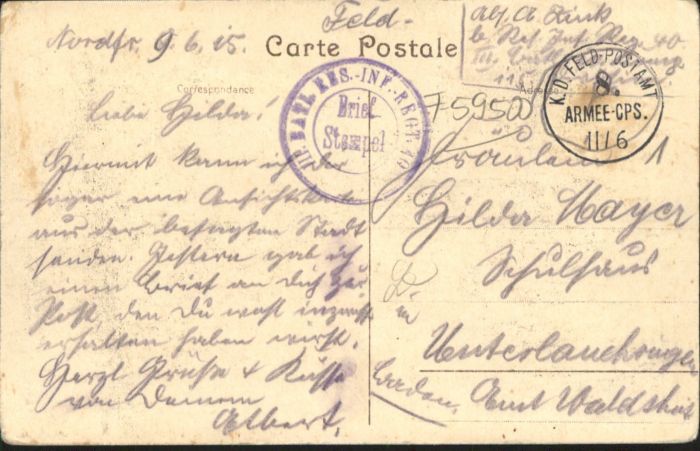 Feld-
Nordfr. 9.6.15.
Carte Postale
Abs. A. Zink
b. Res. Inf. Reg. 40
III.
11
Correspondance
Adresse
III. BATL. RES.-INF.-REGT. 40
Brief
Stempel
K.D. FELD-POSTAMT
8.
ARMEE-CPS.
11/6
759500
1
Liebe Hilda!
Hiermit kann ich dir
sogar eine Ansichtskarte
aus der besagten Stadt
senden. Gestern gab ich
einen Brief an Dich zur
Post, den Du wohl inzwisch
erhalten haben wirst.
Herzl Grüße & Küsse
von Deinem
Albert.
Fräulein
Hilda Mayer
Schulhaus
in
Unterlauchringen
Baden. Amt Waldshut